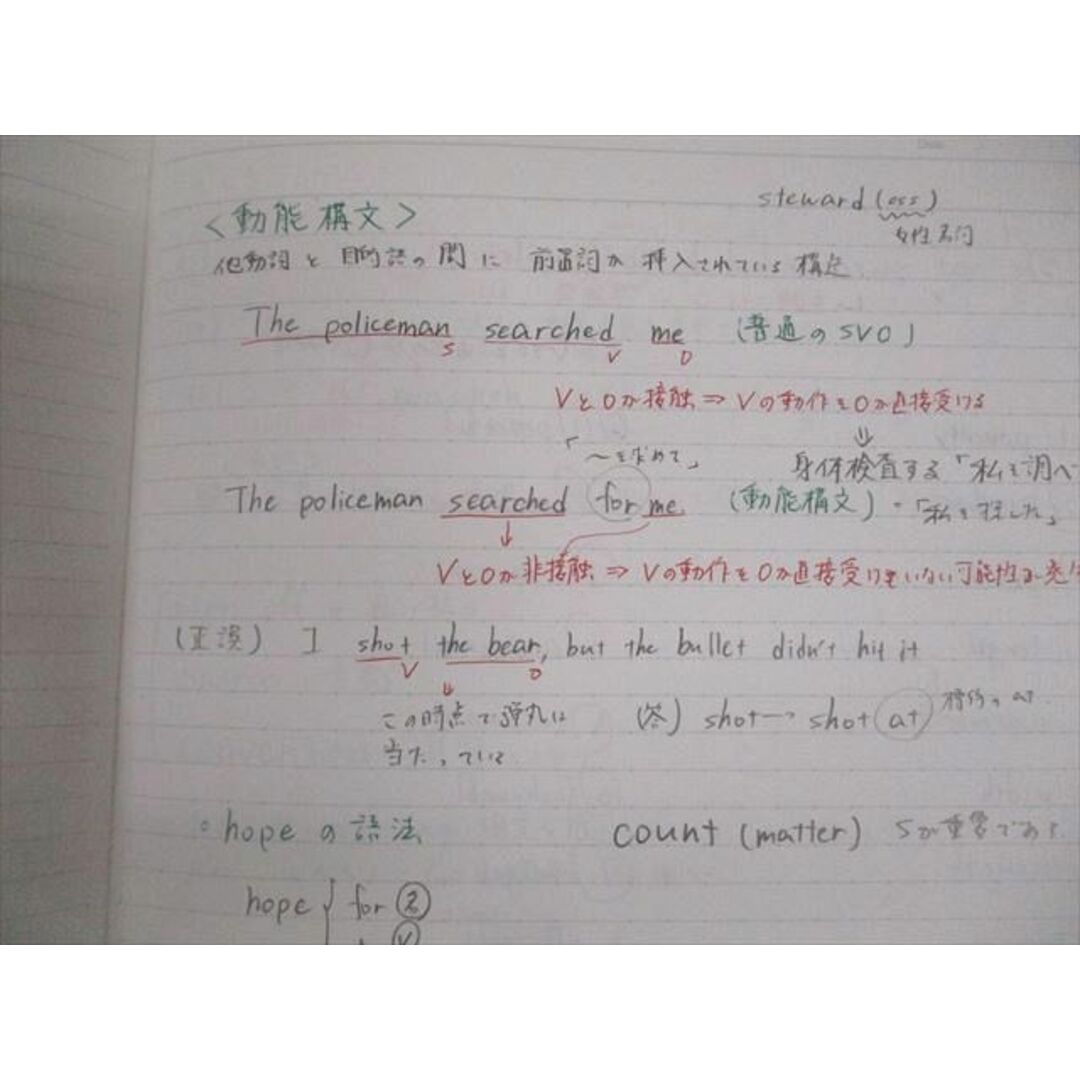 steward (ess)
女性名詞
<動能構文>
他動詞と目的語の間に 前置詞が挿入されている構文
The policeman searched me (普通のSVO)
S V O
VとOが接触⇒Vの動作をOが直接受ける
⇓
「〜を求めて」 身体検査する「私を調べ
The policeman searched for me (動能構文)・「私を探した」
VとOが非接触⇒Vの動作をOが直接受けていない可能性が発生
(正誤) I shot the bear, but the bullet didn't hit it
V O
この時点で弾丸は (答) shot→ shot at
当たっている
。hopeの語法 count (matter) Sが重要である
hope { for ②